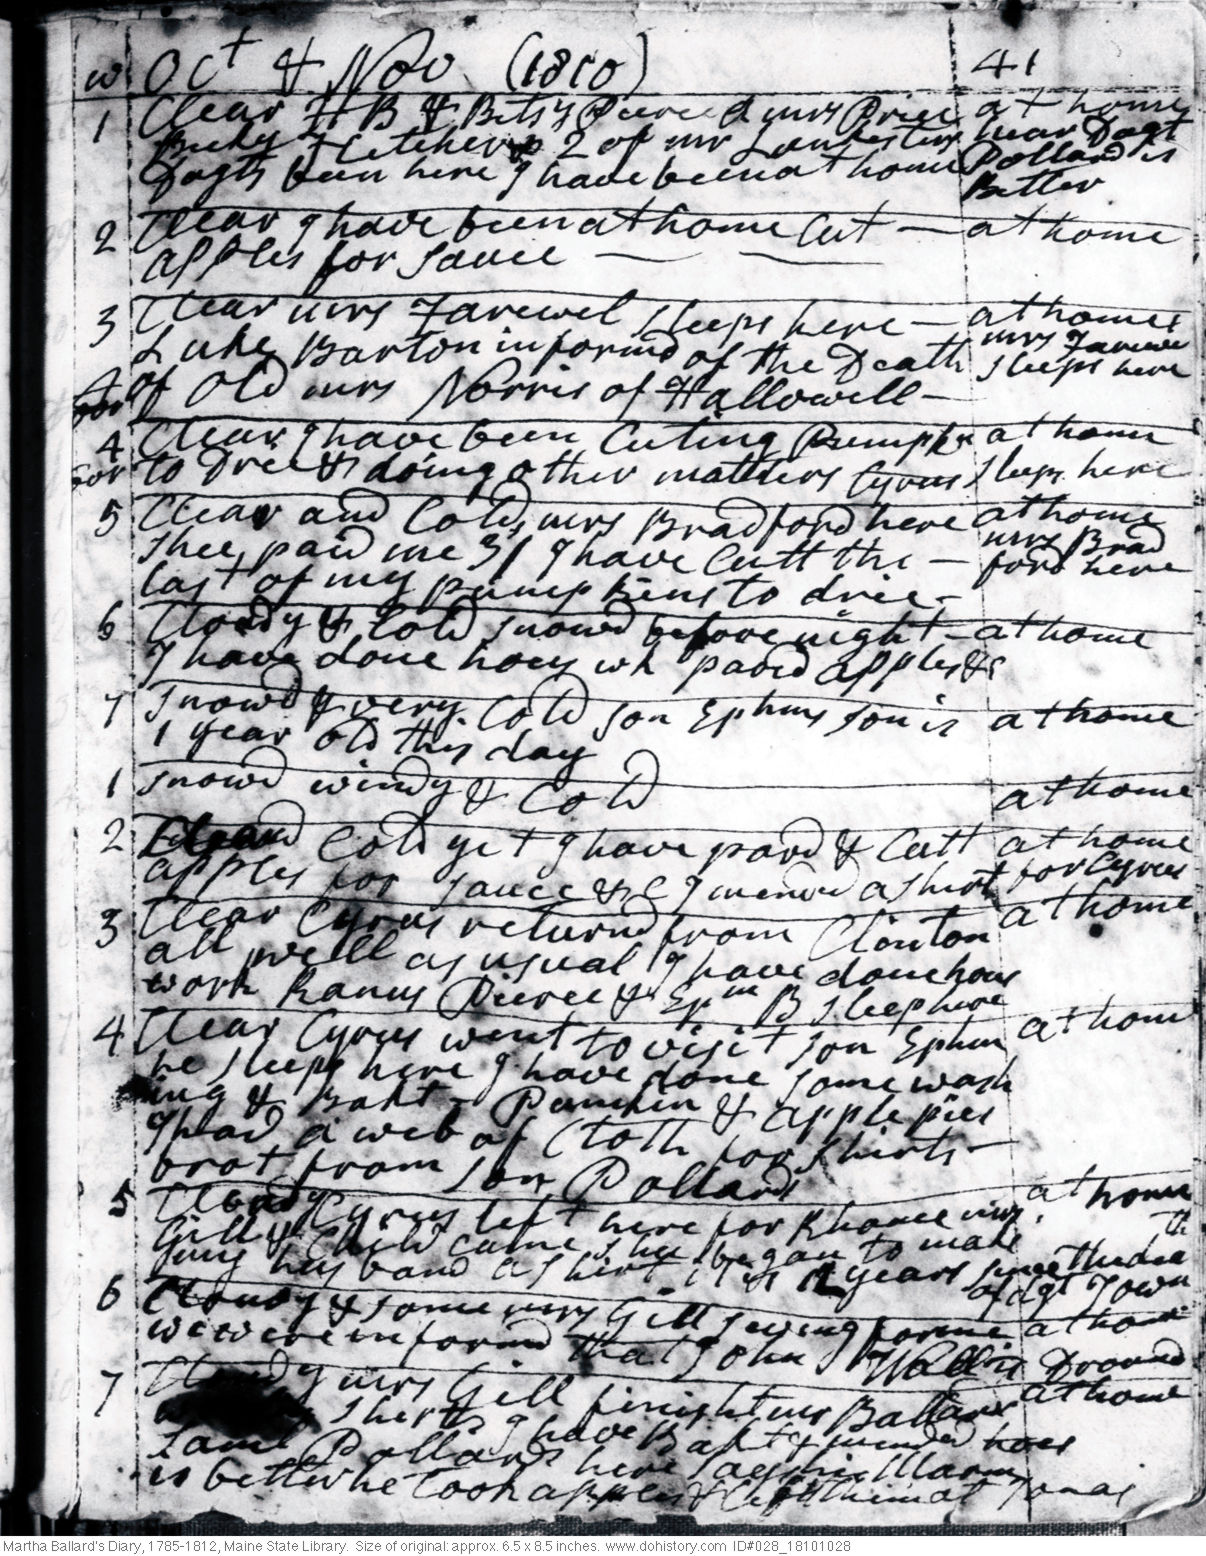 w Oct & Nov (1810) 41
1 Clear H B & Betsy Pierce & mrs Price at home
Becky Fletcher & 2 of mr hear Dagt
Dagts been here I have been at home Pollard is
Better
2 Clear I have been at home Cut — at home
apples for sauce — —
3 Clear mrs Farewel sleeps here — at home
Luke Barton informd of the Death mrs Farewel
of Old mrs Norris of Hallowell — sleeps here
4 Clear I have been Cuting Pumpkn at home
to Drie & doing other matters Cyrus sleeps here
5 Clear and Cold, mrs Bradford here at home
shee paid me 3/ I have Cutt the — mrs Brad
last of my pumpkins to drie - ford here
6 Cloudy & Cold snowd before night — at home
I have done hous wk pared apples &c
7 snowd & very Cold son Ephms son is at home
1 year old this day
1 snowd windy & Cold at home
2 Cold yet I have pard & Cutt at home
apples for sauce &C I mended a shirt for Cyrus
3 Clear Cyrus returnd from Clinton at home
all well as usual I have done hous
work Pierce & Epm B sleep here
4 Clear Cyrus went to visit son Ephm at hom
he sleeps here I have done some wash
ing & Bakt - Pumkin & apple pies
I had a web of Cloth for shirts —
brot from son Pollards
5 Cloudy Cyrus left here for mrs at home
Gill & Child came shee began to make th
Jung husband a shirt it is 12 years since the dea
of dgt Town
6 Cloudy & some mrs Gill sewing for me at home
we were informd that John Wallis Drownd
7 Cloudy mrs Gill finisht mr Ballards at home
shirts I have Bakt & mended hoes
Saml Pollard here
is better he took apples &